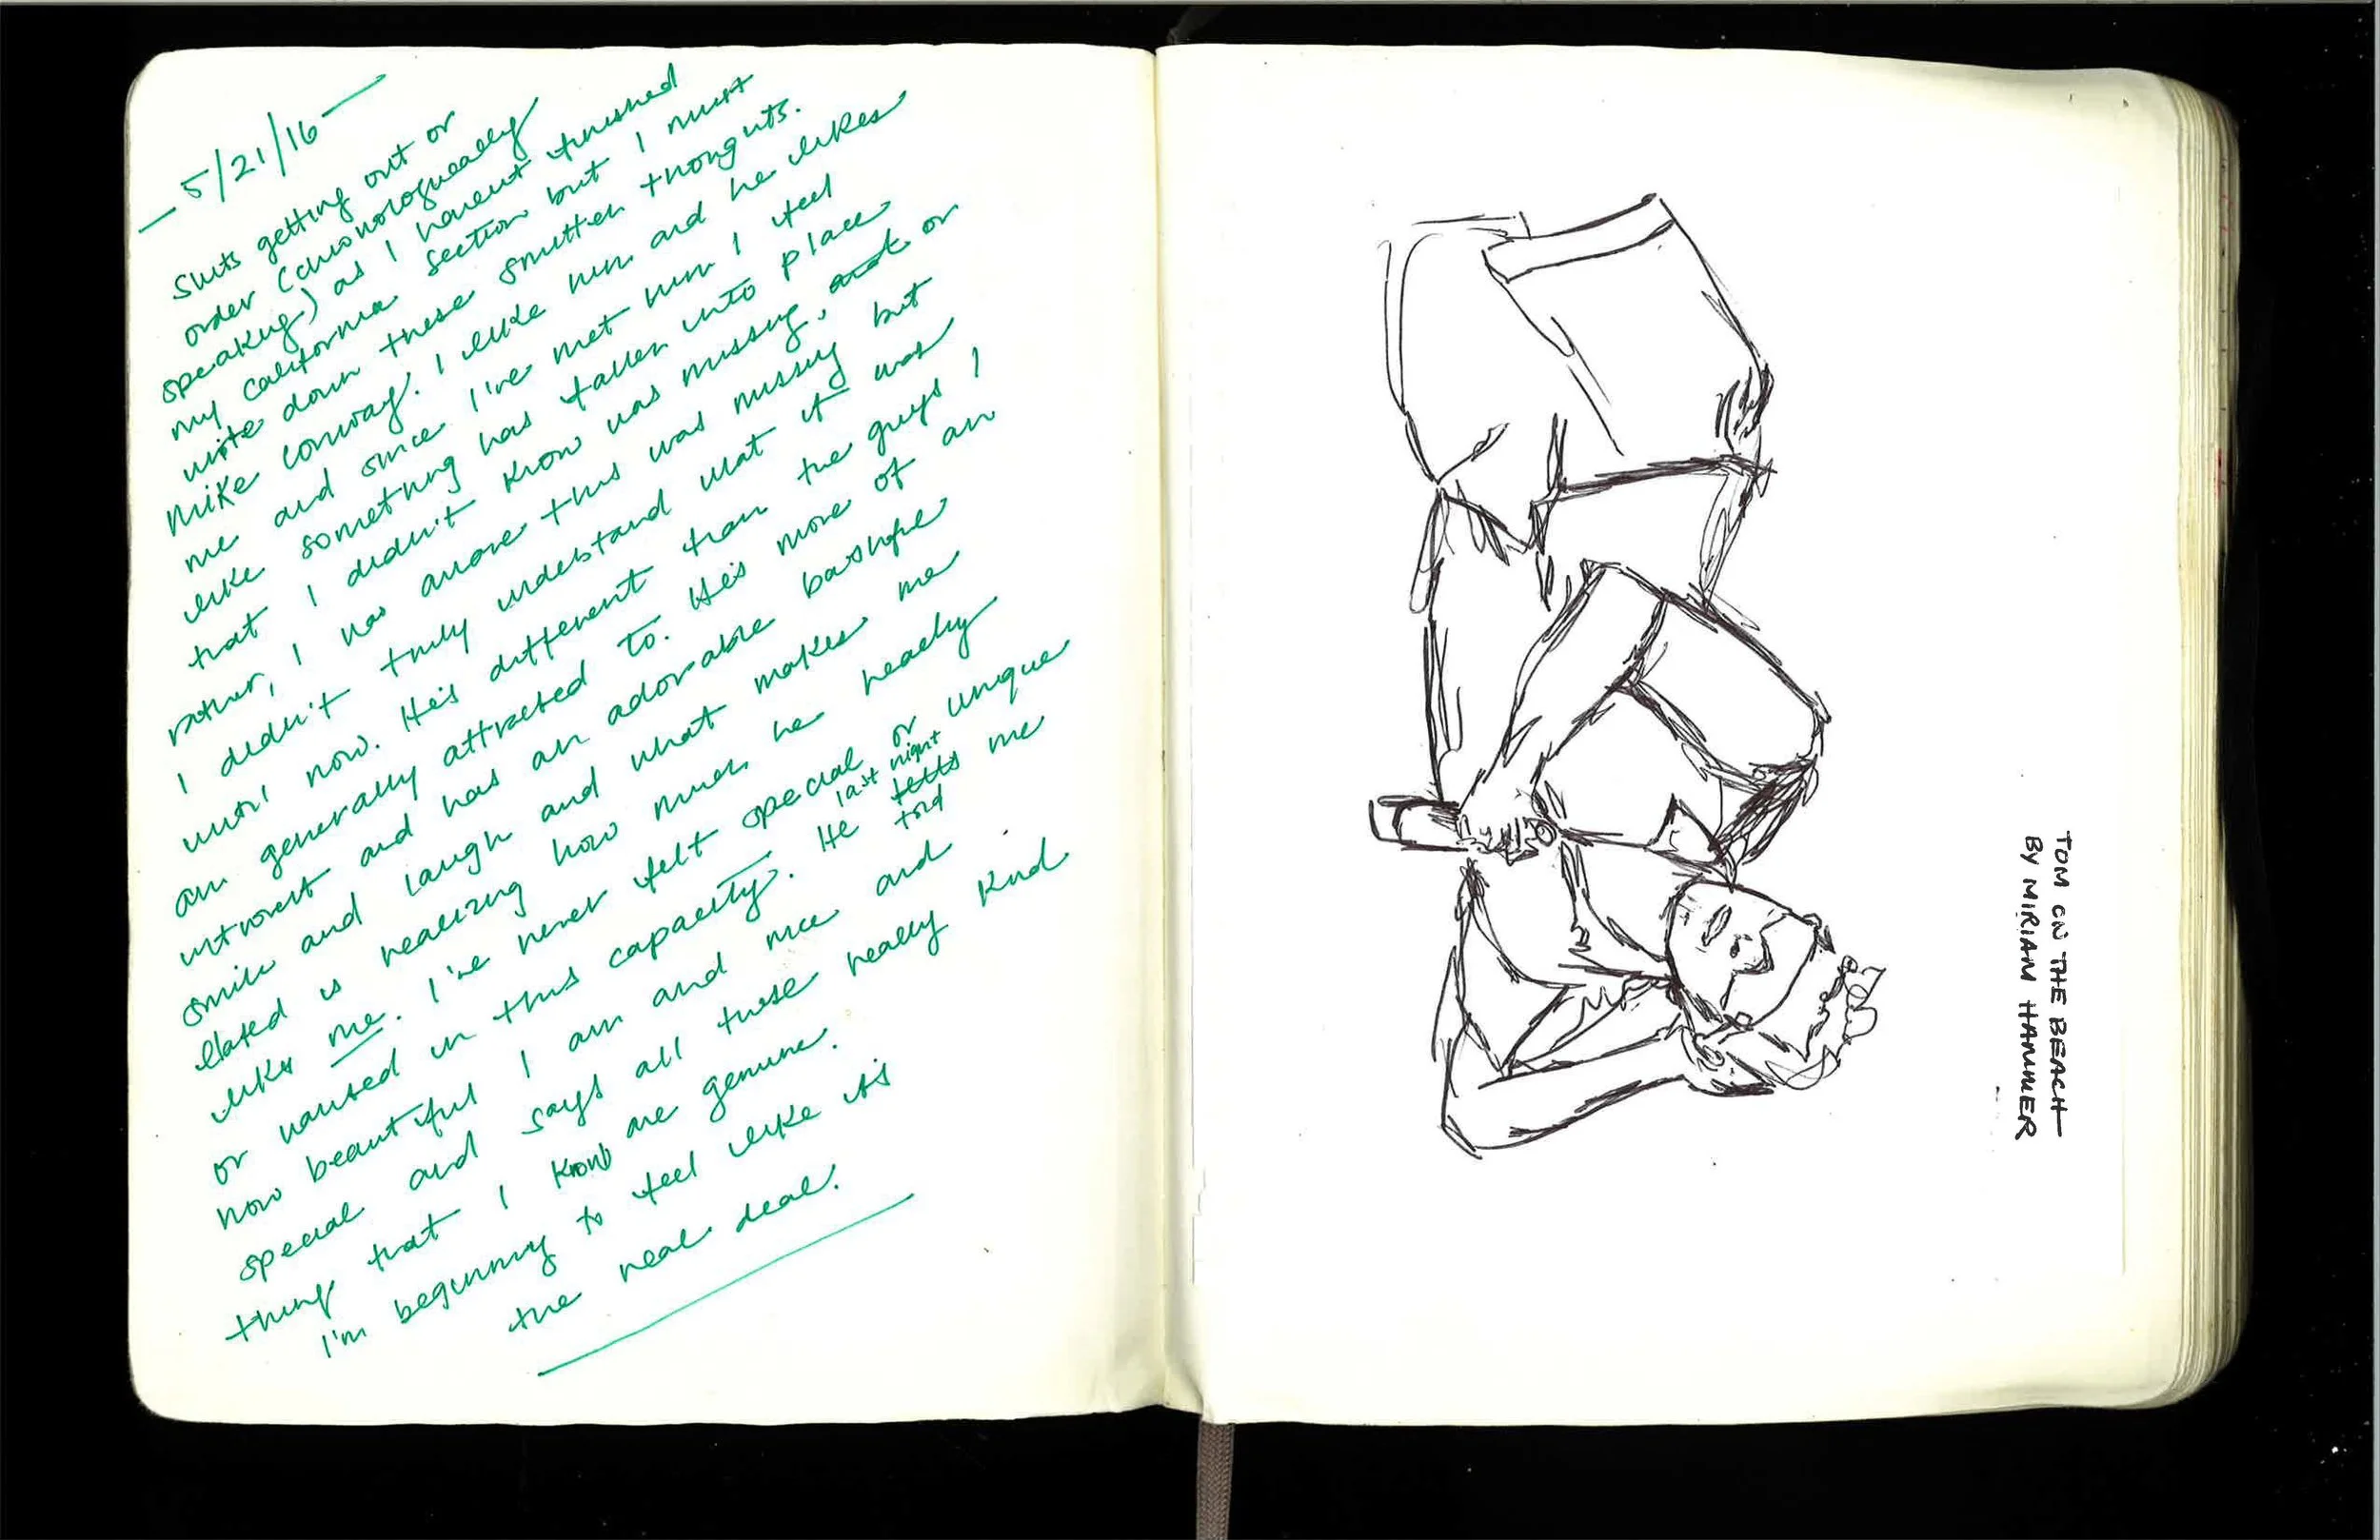 —5/21/16—
Shits getting out or
order (chronologically
speaking) as I havent finished
my california section but I must
write down these smitten thoughts.
Mike Conway. I like him and he likes
me and since I've met him I feel
like something has fallen into place
that I didn't know was missing, and or
rather, I was aware this was missing but
I didn't truly understand what it was
until now. He's different than the guys I
am generally attracted to. He's more of an
introvert and has an adorable bashful
smile and laugh and what makes me
elated is realizing how much he really
likes me. I've never felt special or unique
or wanted in this capacity. He last night tells told me
how beautiful I am and nice and
special and says all these really kind
things that I know are genuine.
I'm beginning to feel like its
the real deal.
TOM ON THE BEACH
BY MIRIAM HAMMER